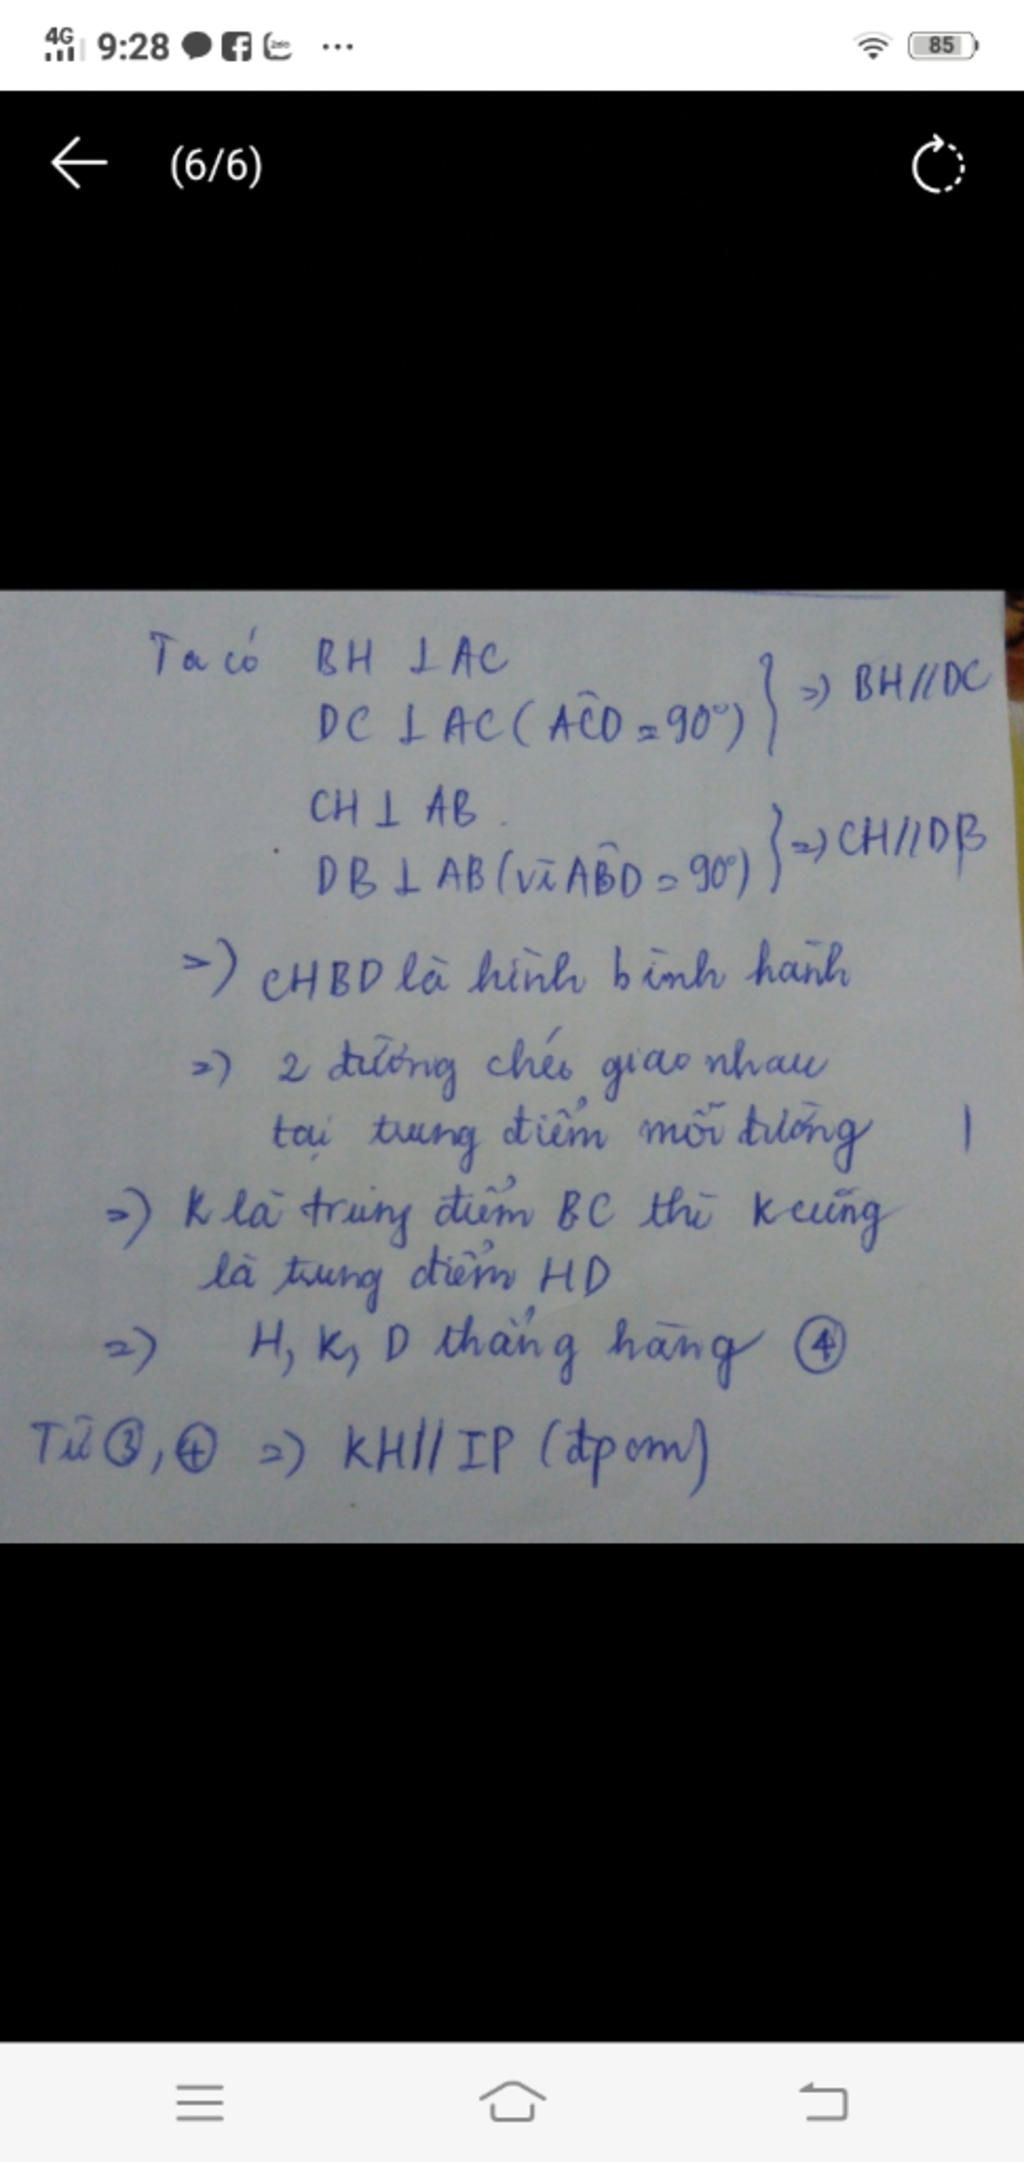 4G 9:28 ... 85
(6/6)
Ta có BH ⊥ AC
DC ⊥ AC (AĈD = 90°) } => BH // DC
CH ⊥ AB.
DB ⊥ AB (vì AB̂D = 90°) } => CH // DB
=> CHBD là hình bình hành
=> 2 đường chéo giao nhau
tại trung điểm mỗi đường
=> K là trung điểm BC thì K cũng
là trung điểm HD
=> H, K, D thẳng hàng ④
Từ ③, ④ => KH // IP (đpcm)